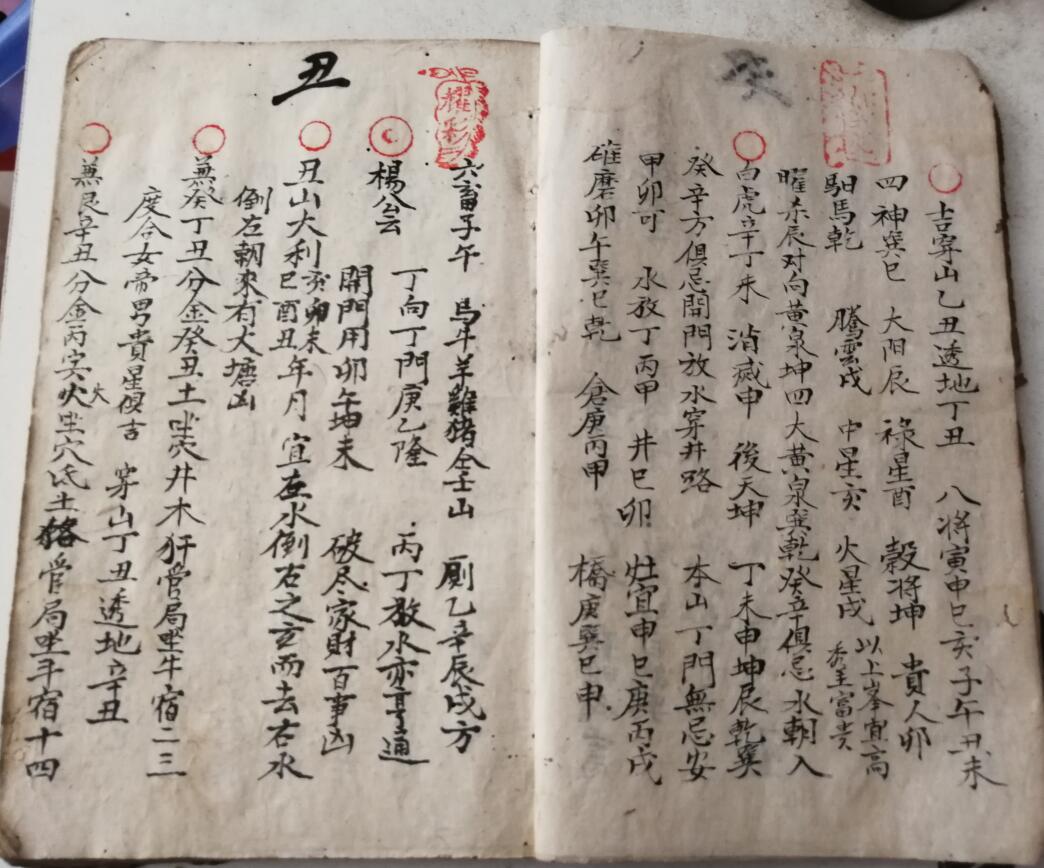 癸
吉穿山乙丑透地丁丑 八将寅申巳亥子午丑未
四神巽巳 大阳辰 祿星酉 穀将坤 貴人卯
馹馬乾 騰雲戌 中星亥 火星戌 以上峯宜高 秀主富贵
曜杀辰对向黄泉坤四大黄泉巽乾癸辛俱忌水朝入
白虎辛丁未 消滅申 後天坤 丁未申坤辰乾巽
癸辛方俱忌開門放水穿井路 本山丁門無忌安
甲卯可 水放丁丙甲 井巳卯 灶宜申巳庚丙戌
碓磨卯午巽巳乾 倉庚丙甲 橋庚巽巳申
丑
耀彩
六畜子午 馬牛羊雞猪全壬山 厠乙辛辰戌方
楊公云 丁向丁門庚乙隆 丙丁放水亦亨通
開門用卯午坤未 破尽家財百事凶
丑山大利亥卯未巳酉丑年月宜在水倒右之玄而去右水
倒左朝來有大塘凶
兼癸丁丑分金癸丑土坐穴井木犴管局坐牛宿二三
度合女帝男貴星傾吉 穿山丁丑透地辛丑
兼艮辛丑分金丙寅火坐穴氐土狢管局坐斗宿十四